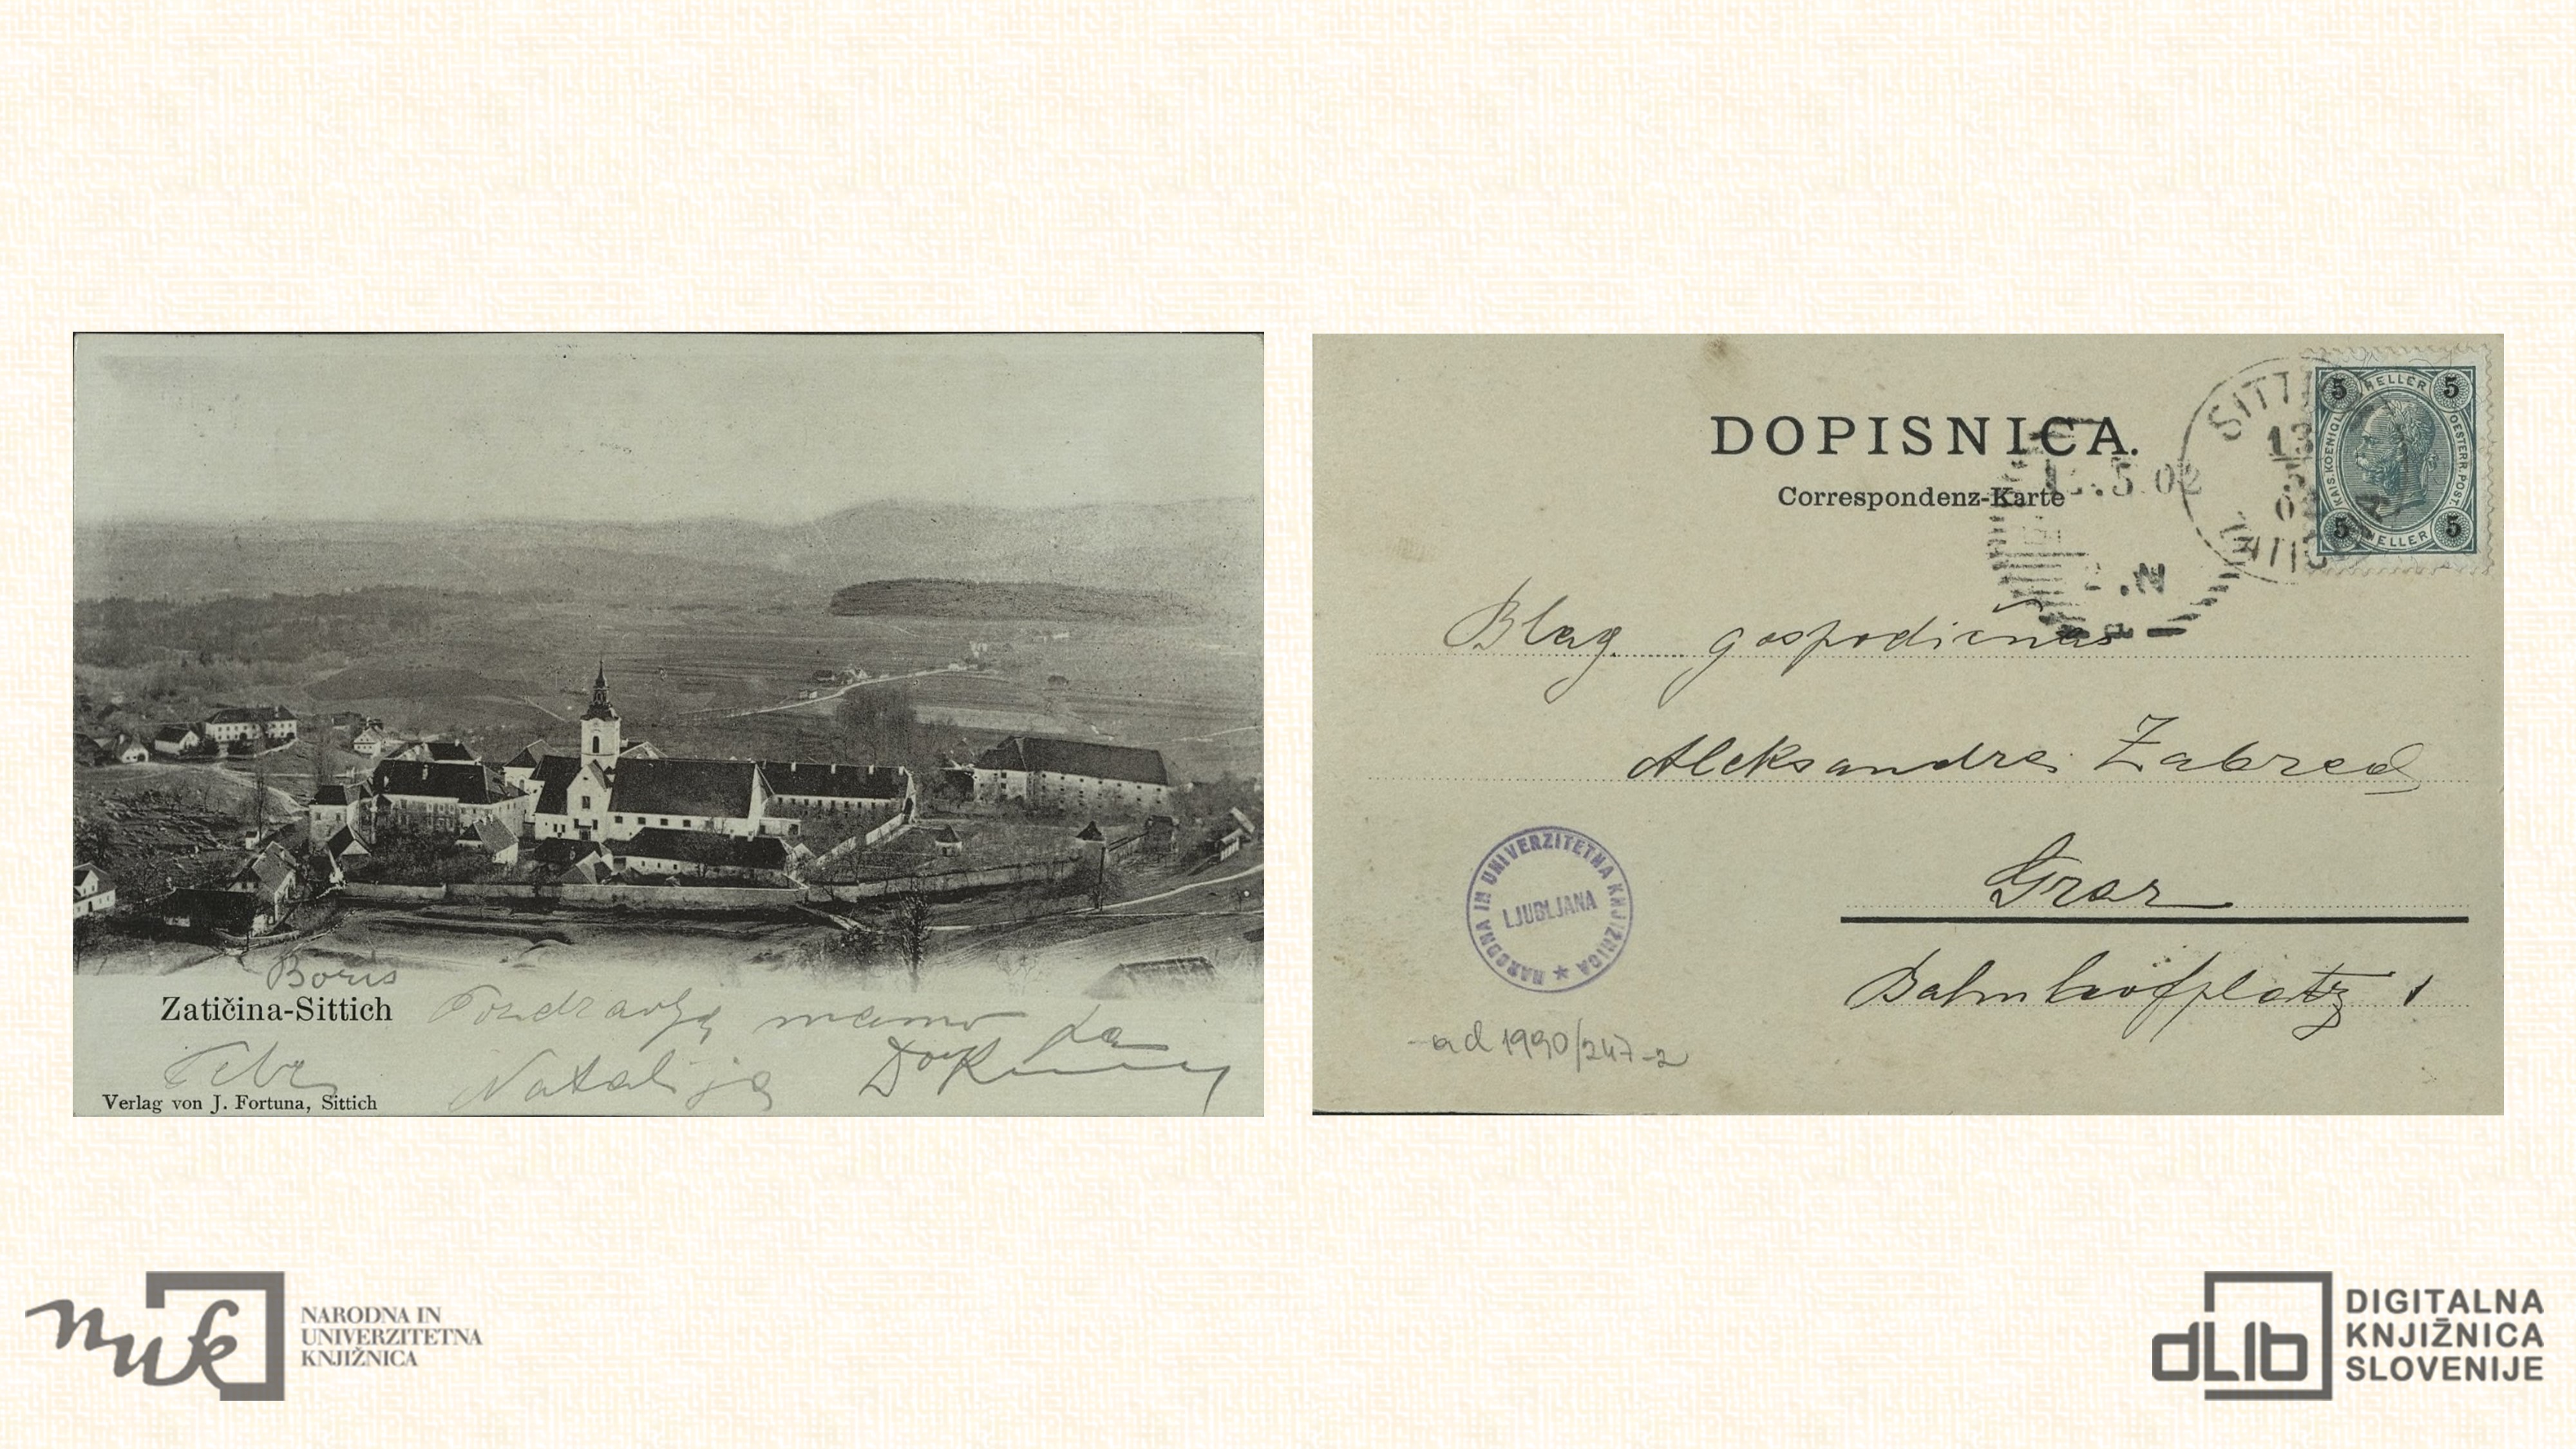 Boris
Zatičina-Sittich
Pozdravlja mamo
Natalija
Verlag von J. Fortuna, Sittich
DOPISNICA.
Correspondenz-Karte
.5.02
SITTI
13
5 HELLER 5
KAIS. KOENIGL. OESTERR. POST.
5 HELLER 5
Blag. gospodična
Aleksandra Zabred
Graz
Bahnhofplatz 1
NARODNA IN UNIVERZITETNA KNJIŽNICA
LJUBLJANA
ad 1990/247-2
nuk
NARODNA IN
UNIVERZITETNA
KNJIŽNICA
dLib
DIGITALNA
KNJIŽNICA
SLOVENIJE